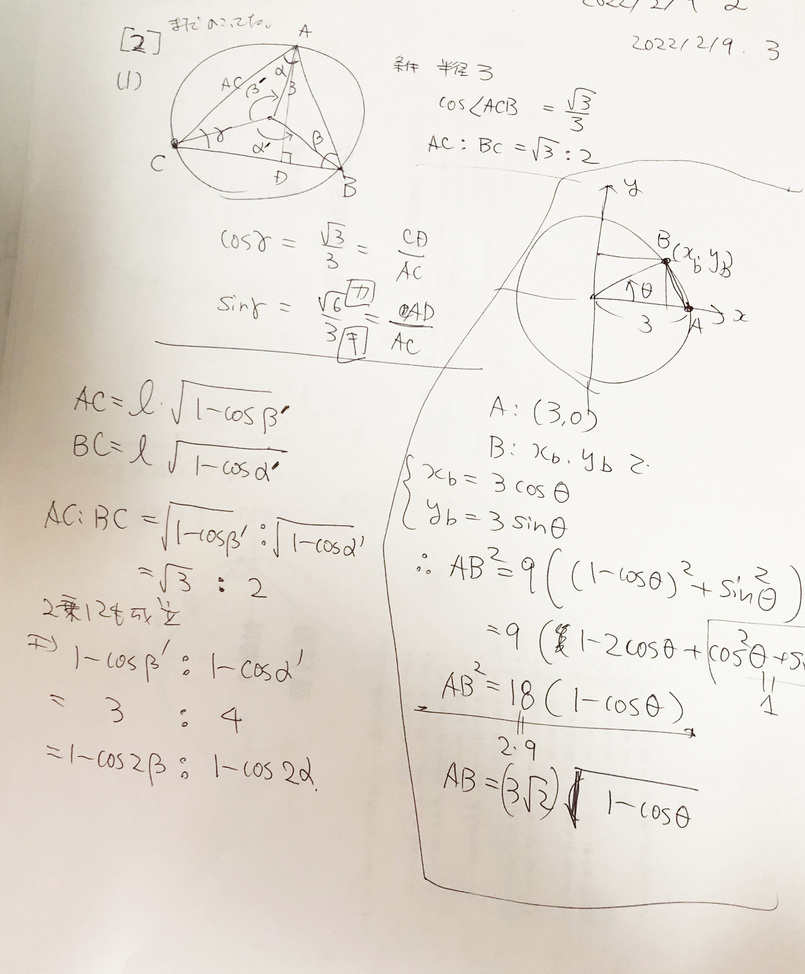 2022/2/9 2
2022/2/9. 3
[2]
(1)
A
AC
β'
α
3
γ
α'
β
C
D
B
条件 半径 3
cos∠ACB = √3/3
AC : BC = √3 : 2
cosγ = √3/3 = CD/AC
sinγ = √6/3 = AD/AC
カ
キ
AC = l・√(1-cosβ')
BC = l √(1-cosα')
AC:BC = √(1-cosβ') : √(1-cosα')
= √3 : 2
2乗しても成立
1-cosβ' : 1-cosα'
= 3 : 4
= 1-cos2β : 1-cos2α.
y
B(x_b, y_B)
θ
3
A
x
A : (3,0)
B : x_b, y_b
{ x_b = 3 cosθ
y_b = 3 sinθ
∴ AB² = 9((1-cosθ)² + sin²θ)
= 9(1-2cosθ + cos²θ+s
1
AB² = 18(1-cosθ)
2・9
AB = (3√2)√(1-cosθ)